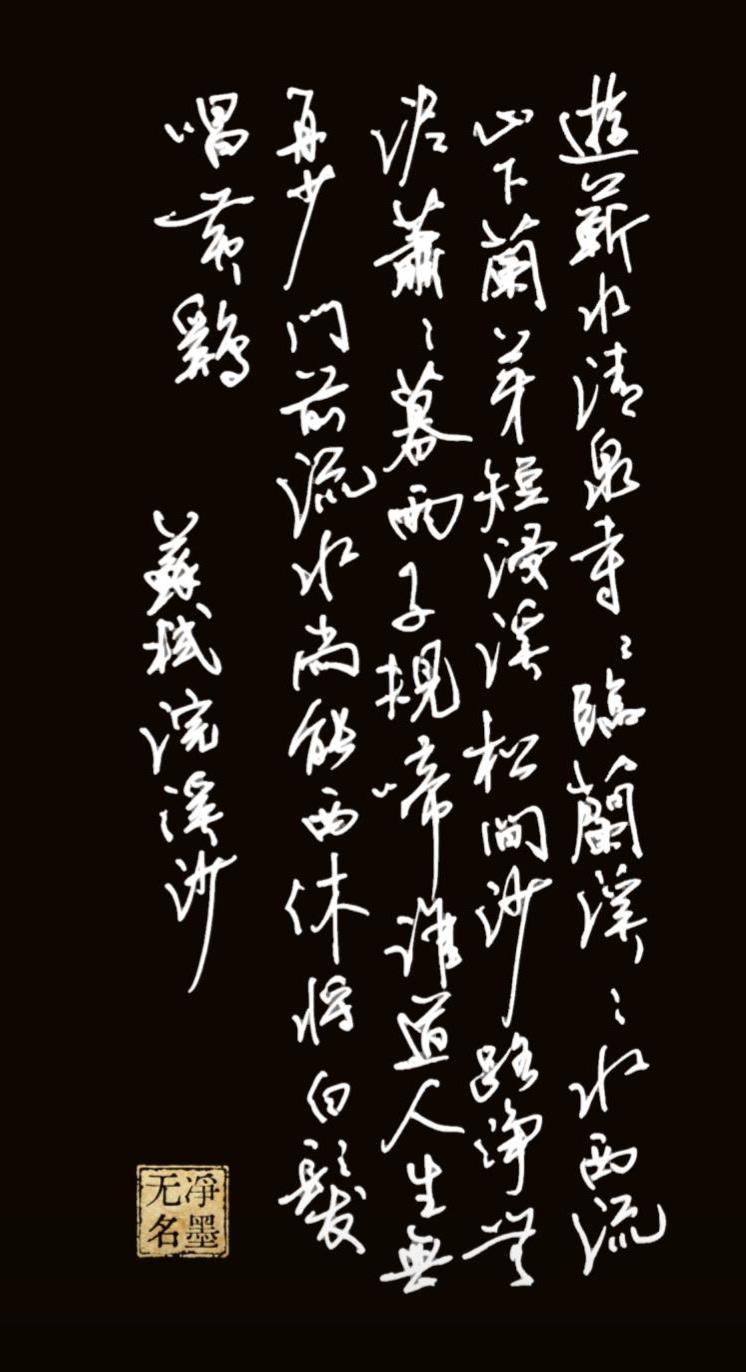 遊蘄水清泉寺〻臨蘭溪〻水西流
山下蘭芽短浸溪松間沙路淨無
泥蕭〻暮雨子規啼誰道人生無
再少門前流水尚能西休將白髮
唱黃鷄
蘇軾浣溪沙
凈墨
无名